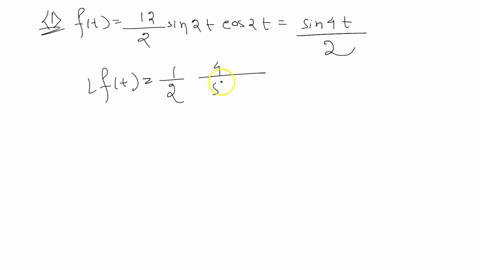 <1> f(t) = 12/2 sin2t cos2t = sin4t/2
Lf(t) = 1/2 4/s